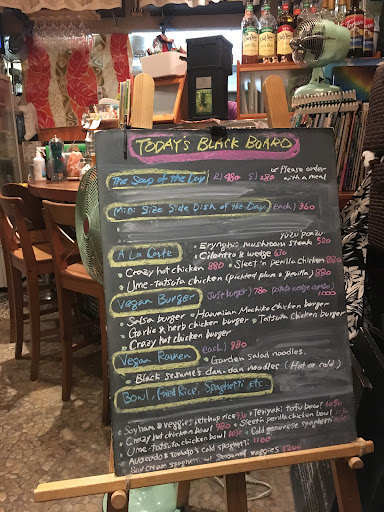 TODAY'S BLACK BOARD
The Soup of the Day R) 480 S) 280 Please order
with a meal
Mini Size Side Dish of the Day Each) 360
yuzu ponzu
A La Carte • Eryngius mushroom steak 520
• Cilantro & wedge 630
• Crazy hot chicken 880 • Sleet'n perilla chicken 880
• Ume-Tatsuta chicken (pickled plum & perilla) 880
Vegan Burger Just burger) 780 potato wedge combo) 1000
• Salsa burger • Hawaiian Mochiko chicken burger
• Garlic & herb chicken burger • Tatsuta Chicken burger
• Crazy hot chicken burger
Vegan Ramen each) 980 • Garden Salad noodles.
• Black sesame's dan-dan noodles (Hot or cold)
Bowl, Fried Rice, Spaghetti, etc
• Soyham & veggies ketchup rice • Teriyaki tofu bowl 1050
• Crazy hot chicken bowl 980 • Sleet'n perilla chicken bowl
• Ume-Tatsuta chicken bowl • Cold genovese spaghetti
• Avocado & tomato's cold spaghetti 1100
Soy cream spaghetti w/ seasonal veggies 1200